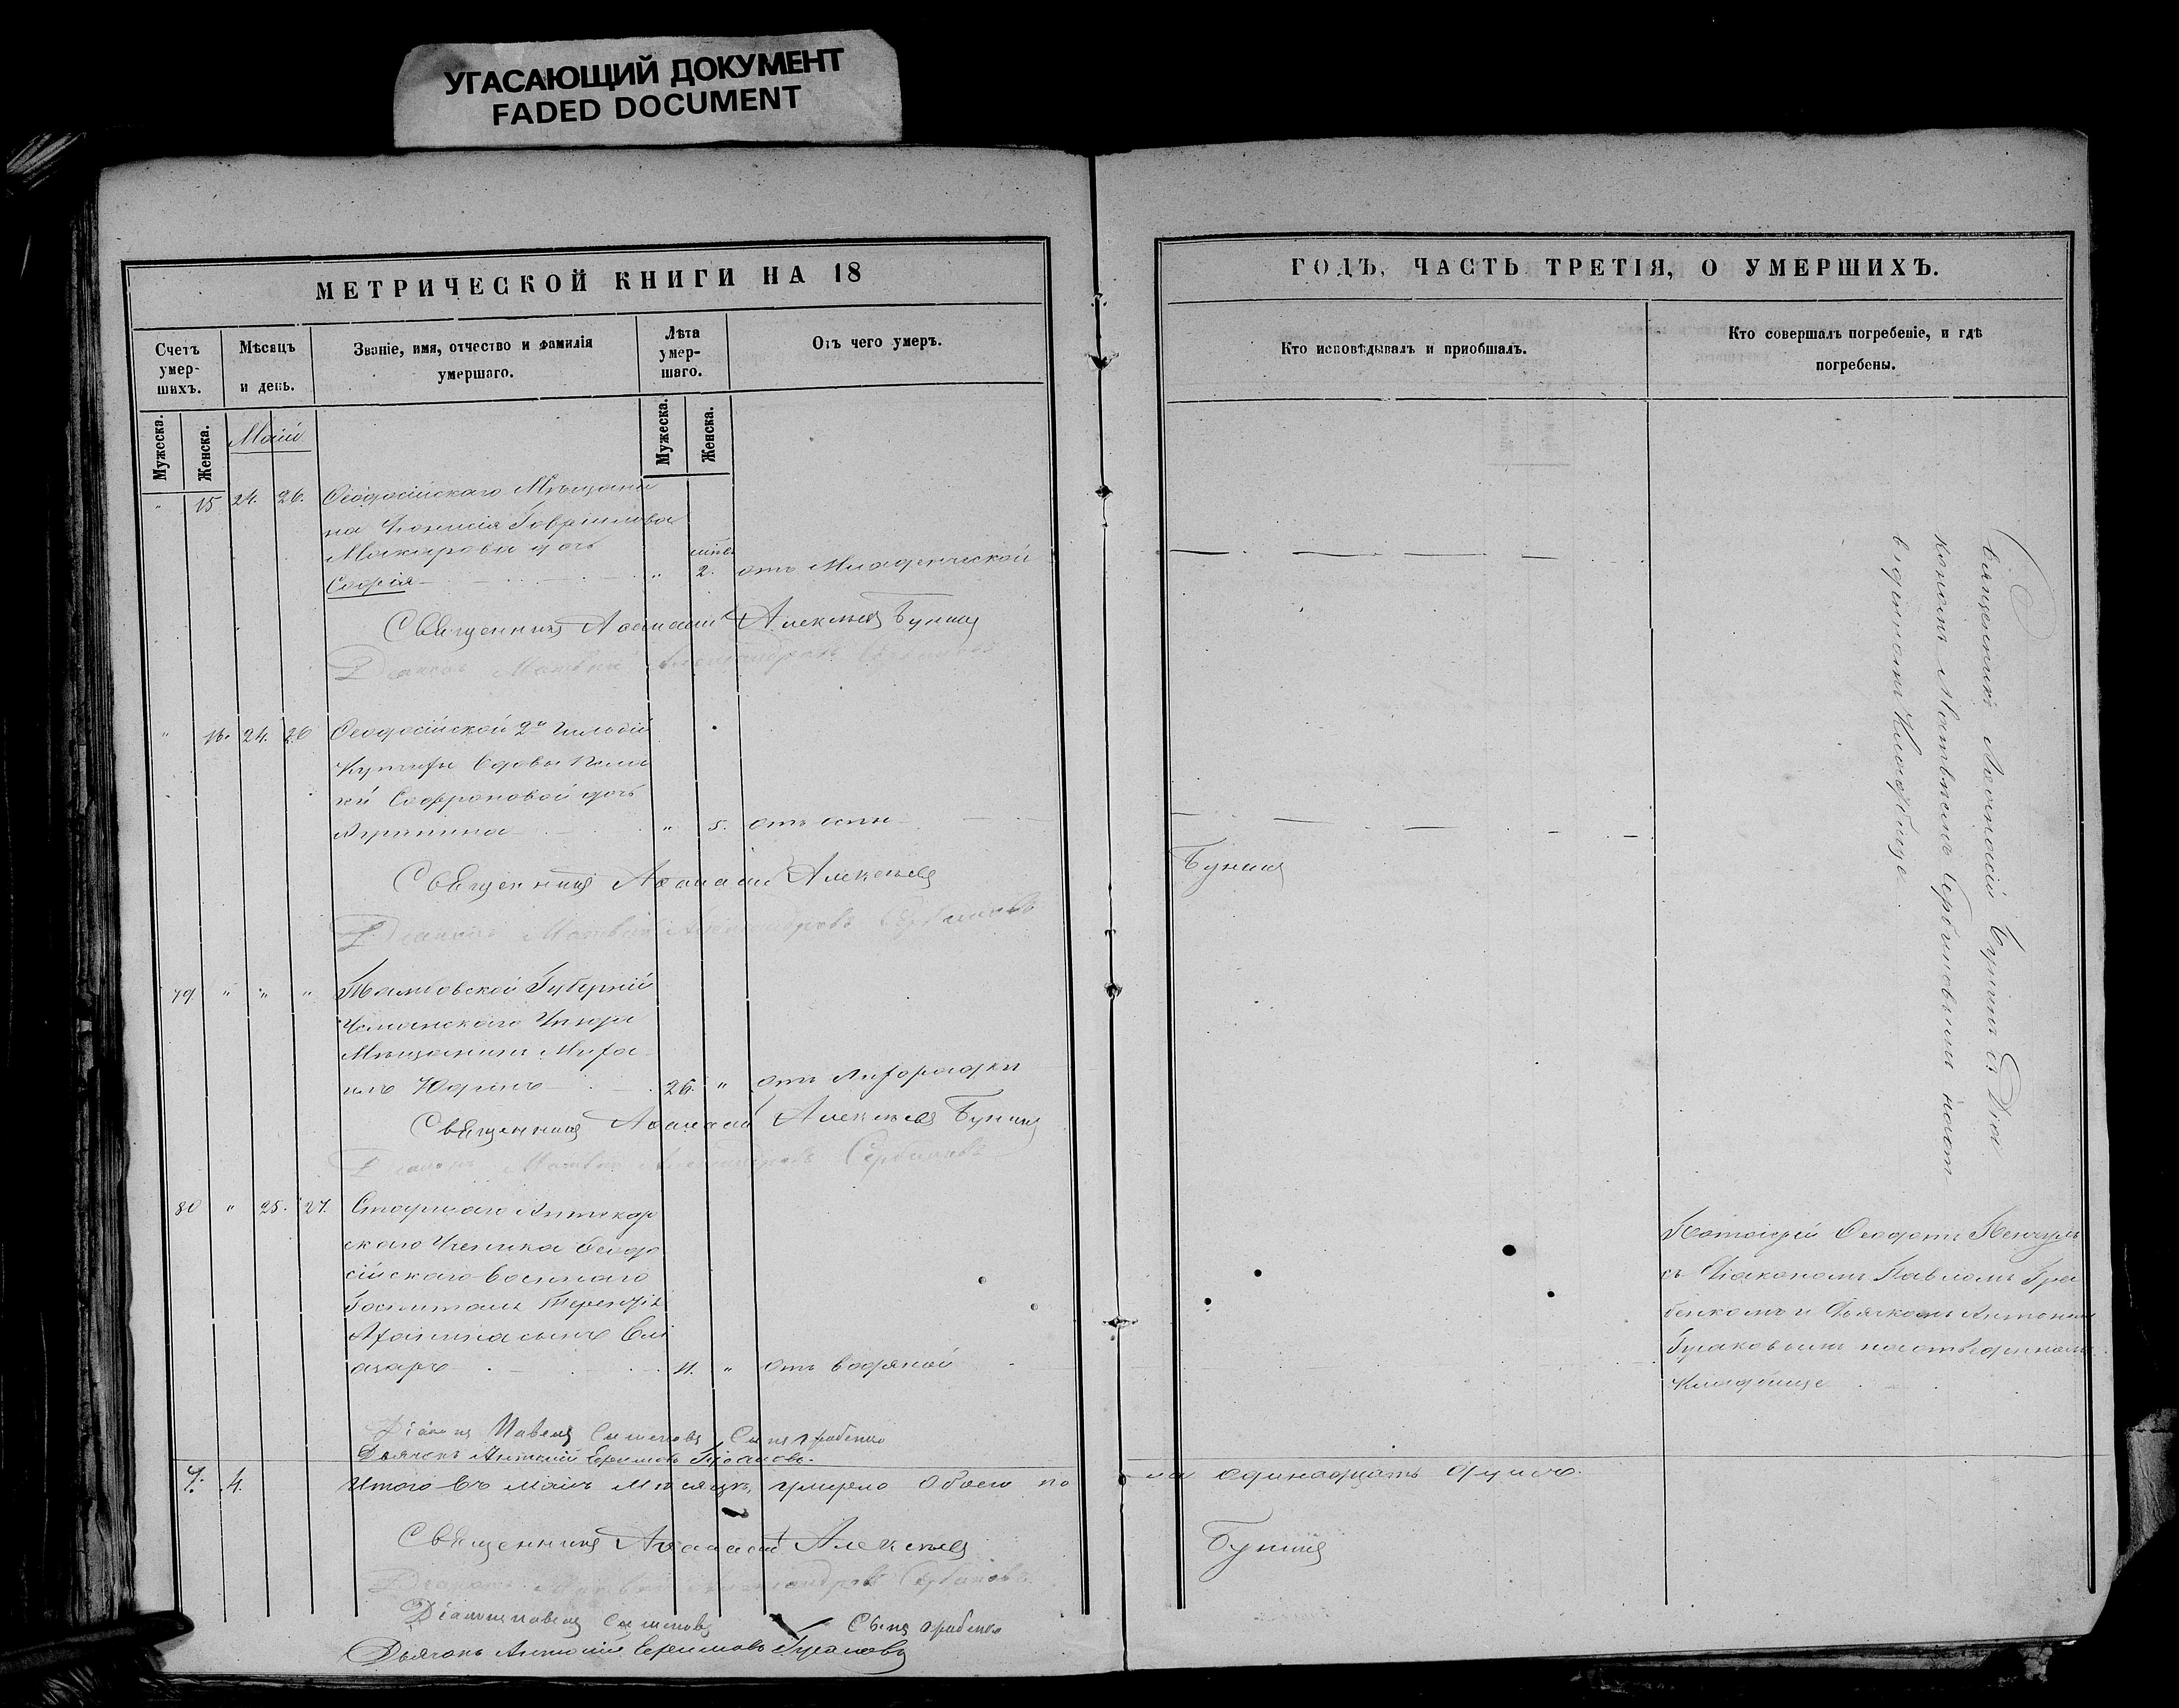 УГАСАЮЩИЙ ДОКУМЕНТ
FADED DOCUMENT
МЕТРИЧЕСКОЙ КНИГИ НА 18
Счетъ умер-шихъ.
Мѣсяцъ и день.
Званіе, имя, отчество и фамилія умершаго.
Лѣта умер-шаго.
Отъ чего умеръ.
Мужеска.
Женска.
Маій
Мужеска.
Женска.
" 15 24. 26. Ѳеодосійскаго Мѣщани
на Гаврилова
Макарова дочь
Софія " 2. отъ Младенческой
Священникъ Аѳанасій Алексѣевъ Бунинъ
Діаконъ Матвѣй Александровъ Сербиновъ
" 16. 24. 26 Ѳеодосійской 2й Гильдіи
Купчихи Вдовы
Софроновой дочь
Агрипина " 5. отъ оспы
Священникъ Аѳанасій Алексѣевъ
Діаконъ Матвѣй Александровъ Сербиновъ
79 " " " Тамбовской Губерніи
Усманскаго Уѣзда
Мѣщанинъ Миха
илъ Юдинъ 26. " отъ Лихорадки
Священникъ Аѳанасій Алексѣевъ Бунинъ
Діаконъ Матвѣй Александровъ Сербиновъ
80 " 25. 27. Старшаго Аптекар
скаго Ученика Ѳеодо
сійскаго военнаго
Госпиталя Терентія
сынъ Елі
азаръ " отъ водяной
Діаконъ Павелъ Симеоновъ Сынъ Грабенко
Дьячокъ Антоній Гусаковъ.
7. 4. Итого въ маіѣ мѣсяцѣ, умерло обоего по
Священникъ Аѳанасій Алексѣевъ
Діаконъ Матвѣй Александровъ Сербиновъ
Діаконъ Павелъ Симеоновъ Сынъ Грабенко
Дьячокъ Антоній Гусаковъ
ГОДЪ, ЧАСТЬ ТРЕТІЯ, О УМЕРШИХЪ.
Кто исповѣдывалъ и пріобщалъ.
Кто совершалъ погребеніе, и гдѣ
погребены.
Священникъ Аѳонасій Бунинъ съ Діа
кономъ Матвѣемъ Сербиновымъ на от
веденномъ Кладбище.
Бунинъ
Протоіерей Ѳеодотъ
съ Діакономъ Павломъ Гра
бенкомъ и Дьячкомъ Антоніемъ
Гусаковымъ на отведенномъ
Кладбище
ла одинадцать душъ.
Бунинъ